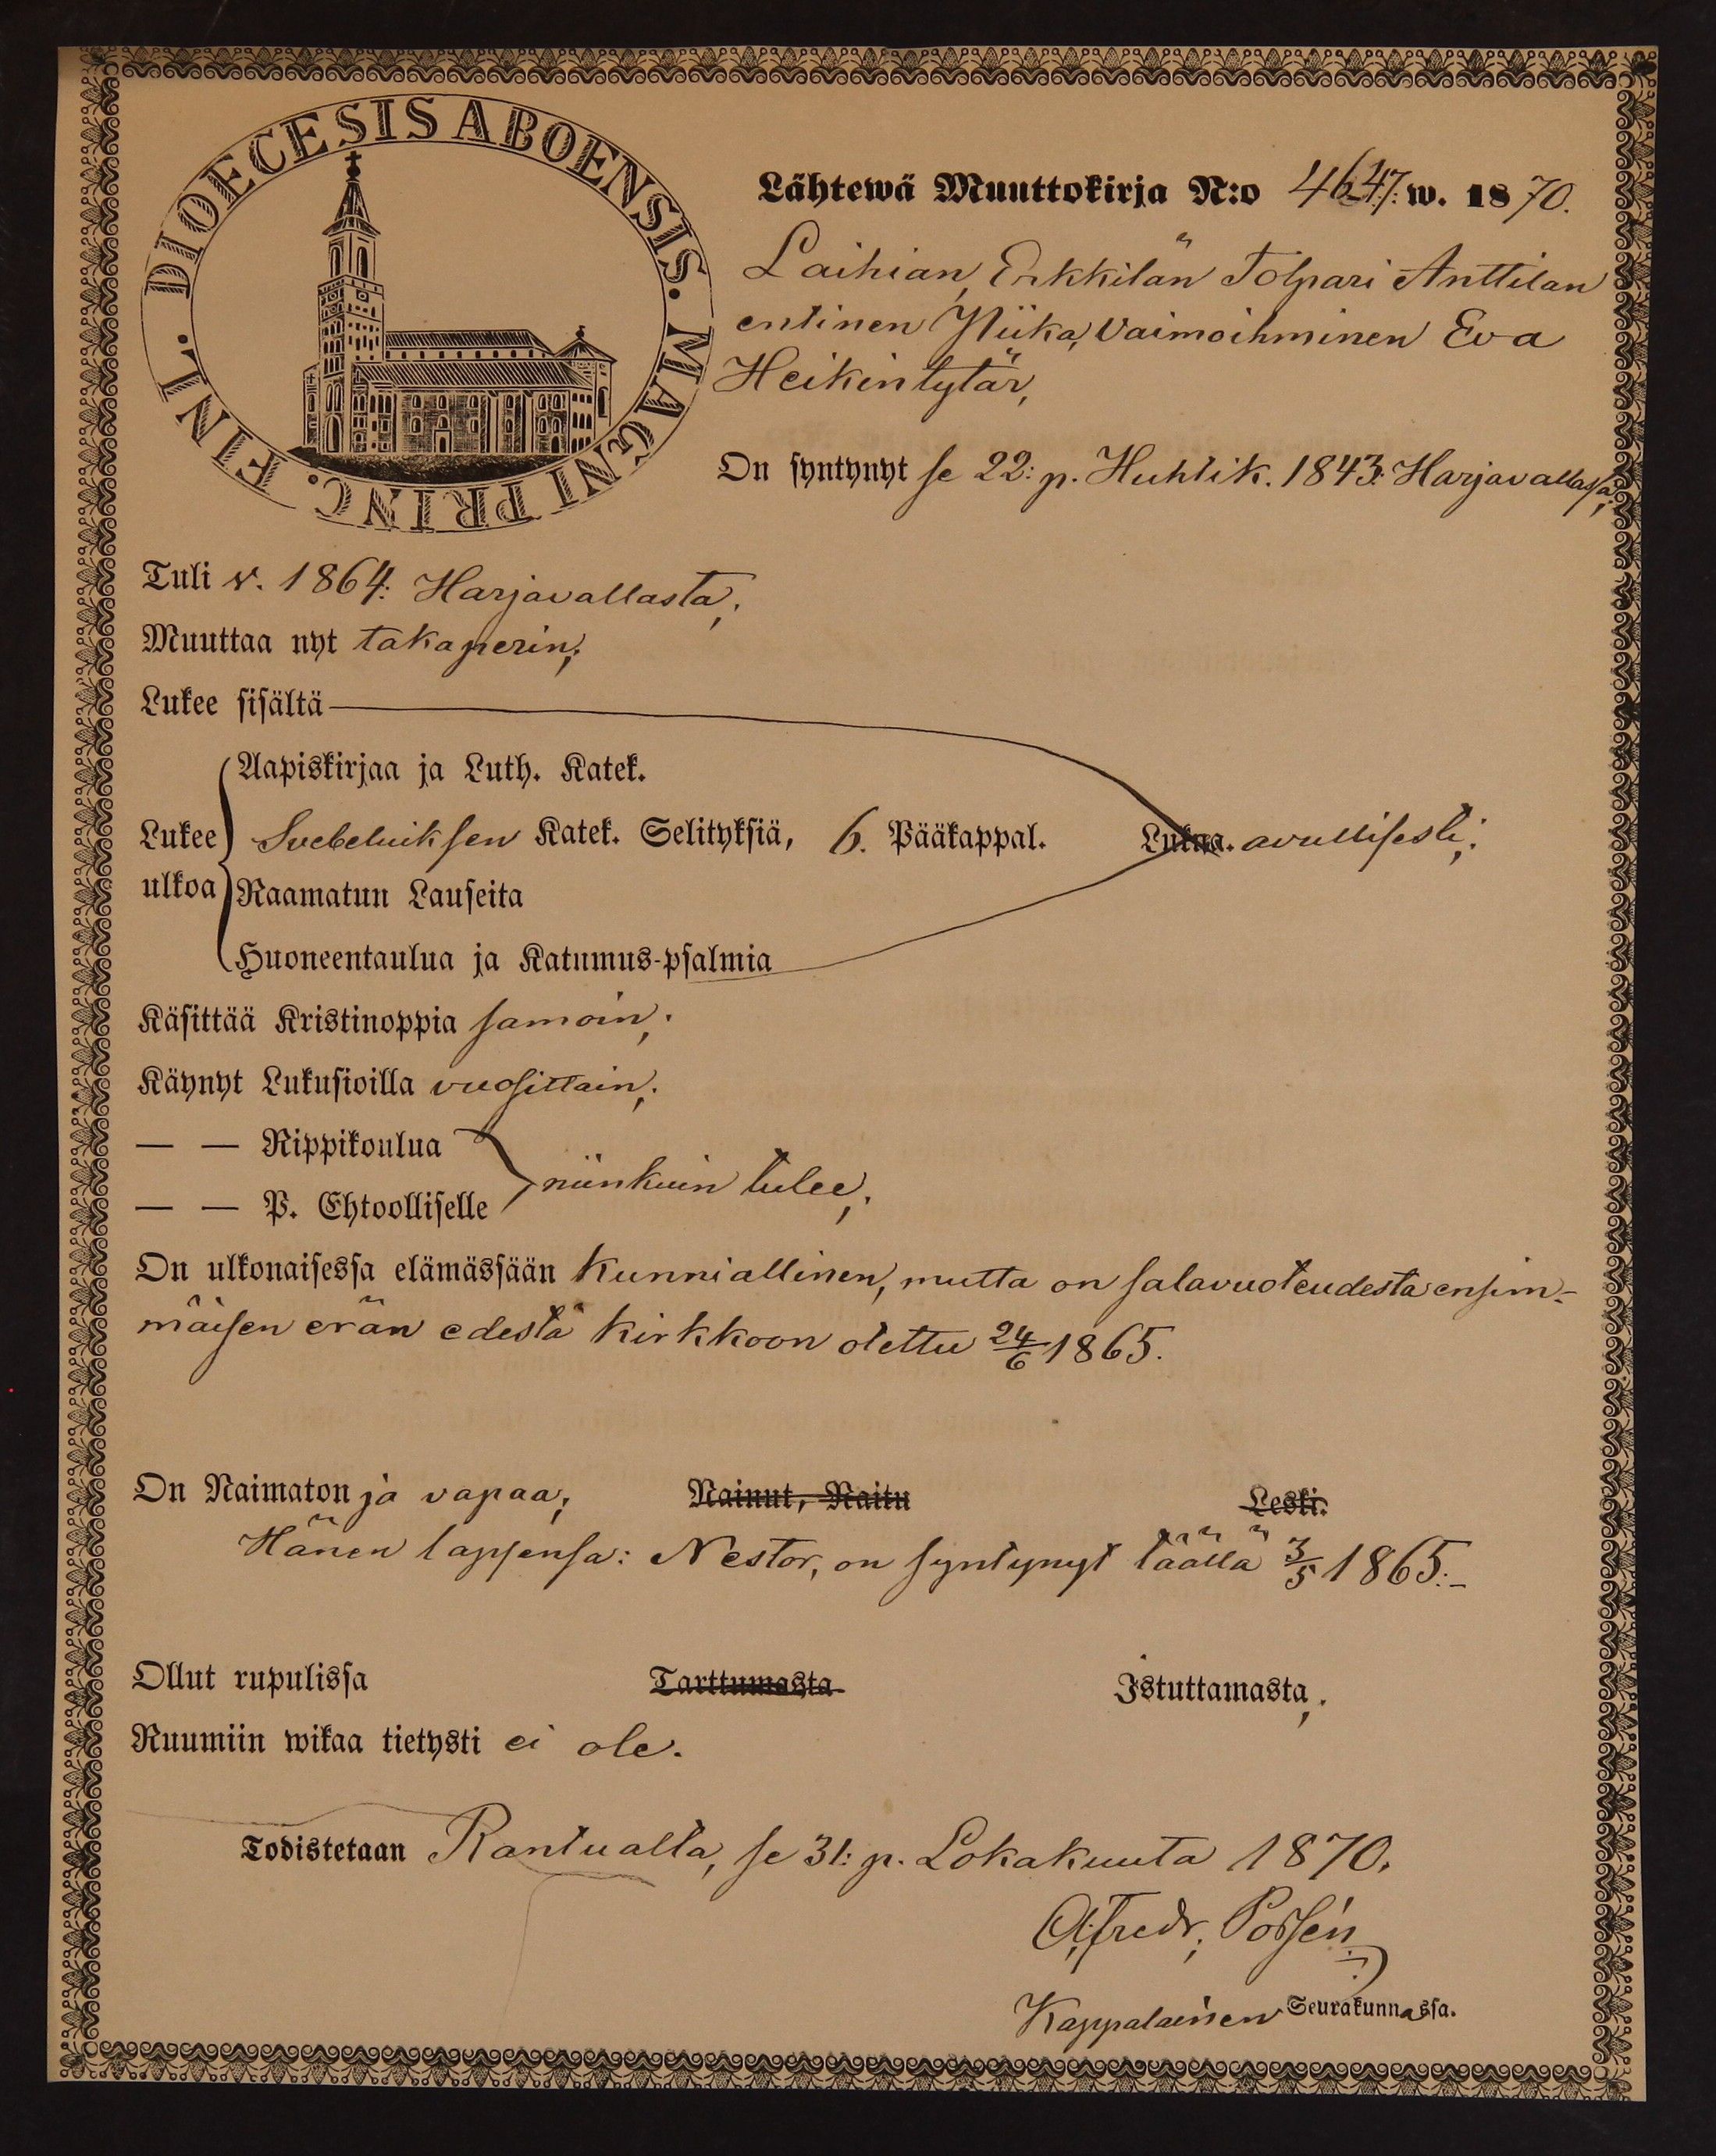 DIOECESIS ABOENSIS. MAGNI PRINC. FINL.
Lähtewä Muuttokirja N:o 4647: w. 1870.
Laihian, Erkkilän Tolpari Anttilan
entinen Piika, Vaimoihminen Eva
Heikintytär,
On syntynyt se 22: p. Huhtik. 1843: Harjavallassa,
Tuli v. 1864: Harjavallasta;
Muuttaa nyt takaperin;
Lukee sisältä
Aapiskirjaa ja Luth. Katek.
Lukee Svebeluiksen Katek. Selityksiä, 6. Pääkappal. Lukua. avullisesti;
ulkoa Raamatun Lauseita
Huoneentaulua ja Katumus-psalmia
Käsittää Kristinoppia samoin;
Käynyt Lukusioilla vuosittain;
— — Rippikoulua
niinkuin tulee;
— — P. Ehtoolliselle
On ulkonaisessa elämässään kunniallinen, mutta on salavuoteudesta ensim-
mäisen erän edestä kirkkoon otettu 24/6 1865.
On Naimaton ja vapaa; Nainut, Naitu Leski.
Hänen lapsensa: Nestor, on syntynyt täällä 3/5 1865:-
Ollut rupulissa Tarttumasta Istuttamasta;
Ruumiin wikaa tietysti ei ole.
Todistetaan Kantualta, se 31: p. Lokakuuta 1870.
Alfredr.
Kappalainen Seurakunnassa.